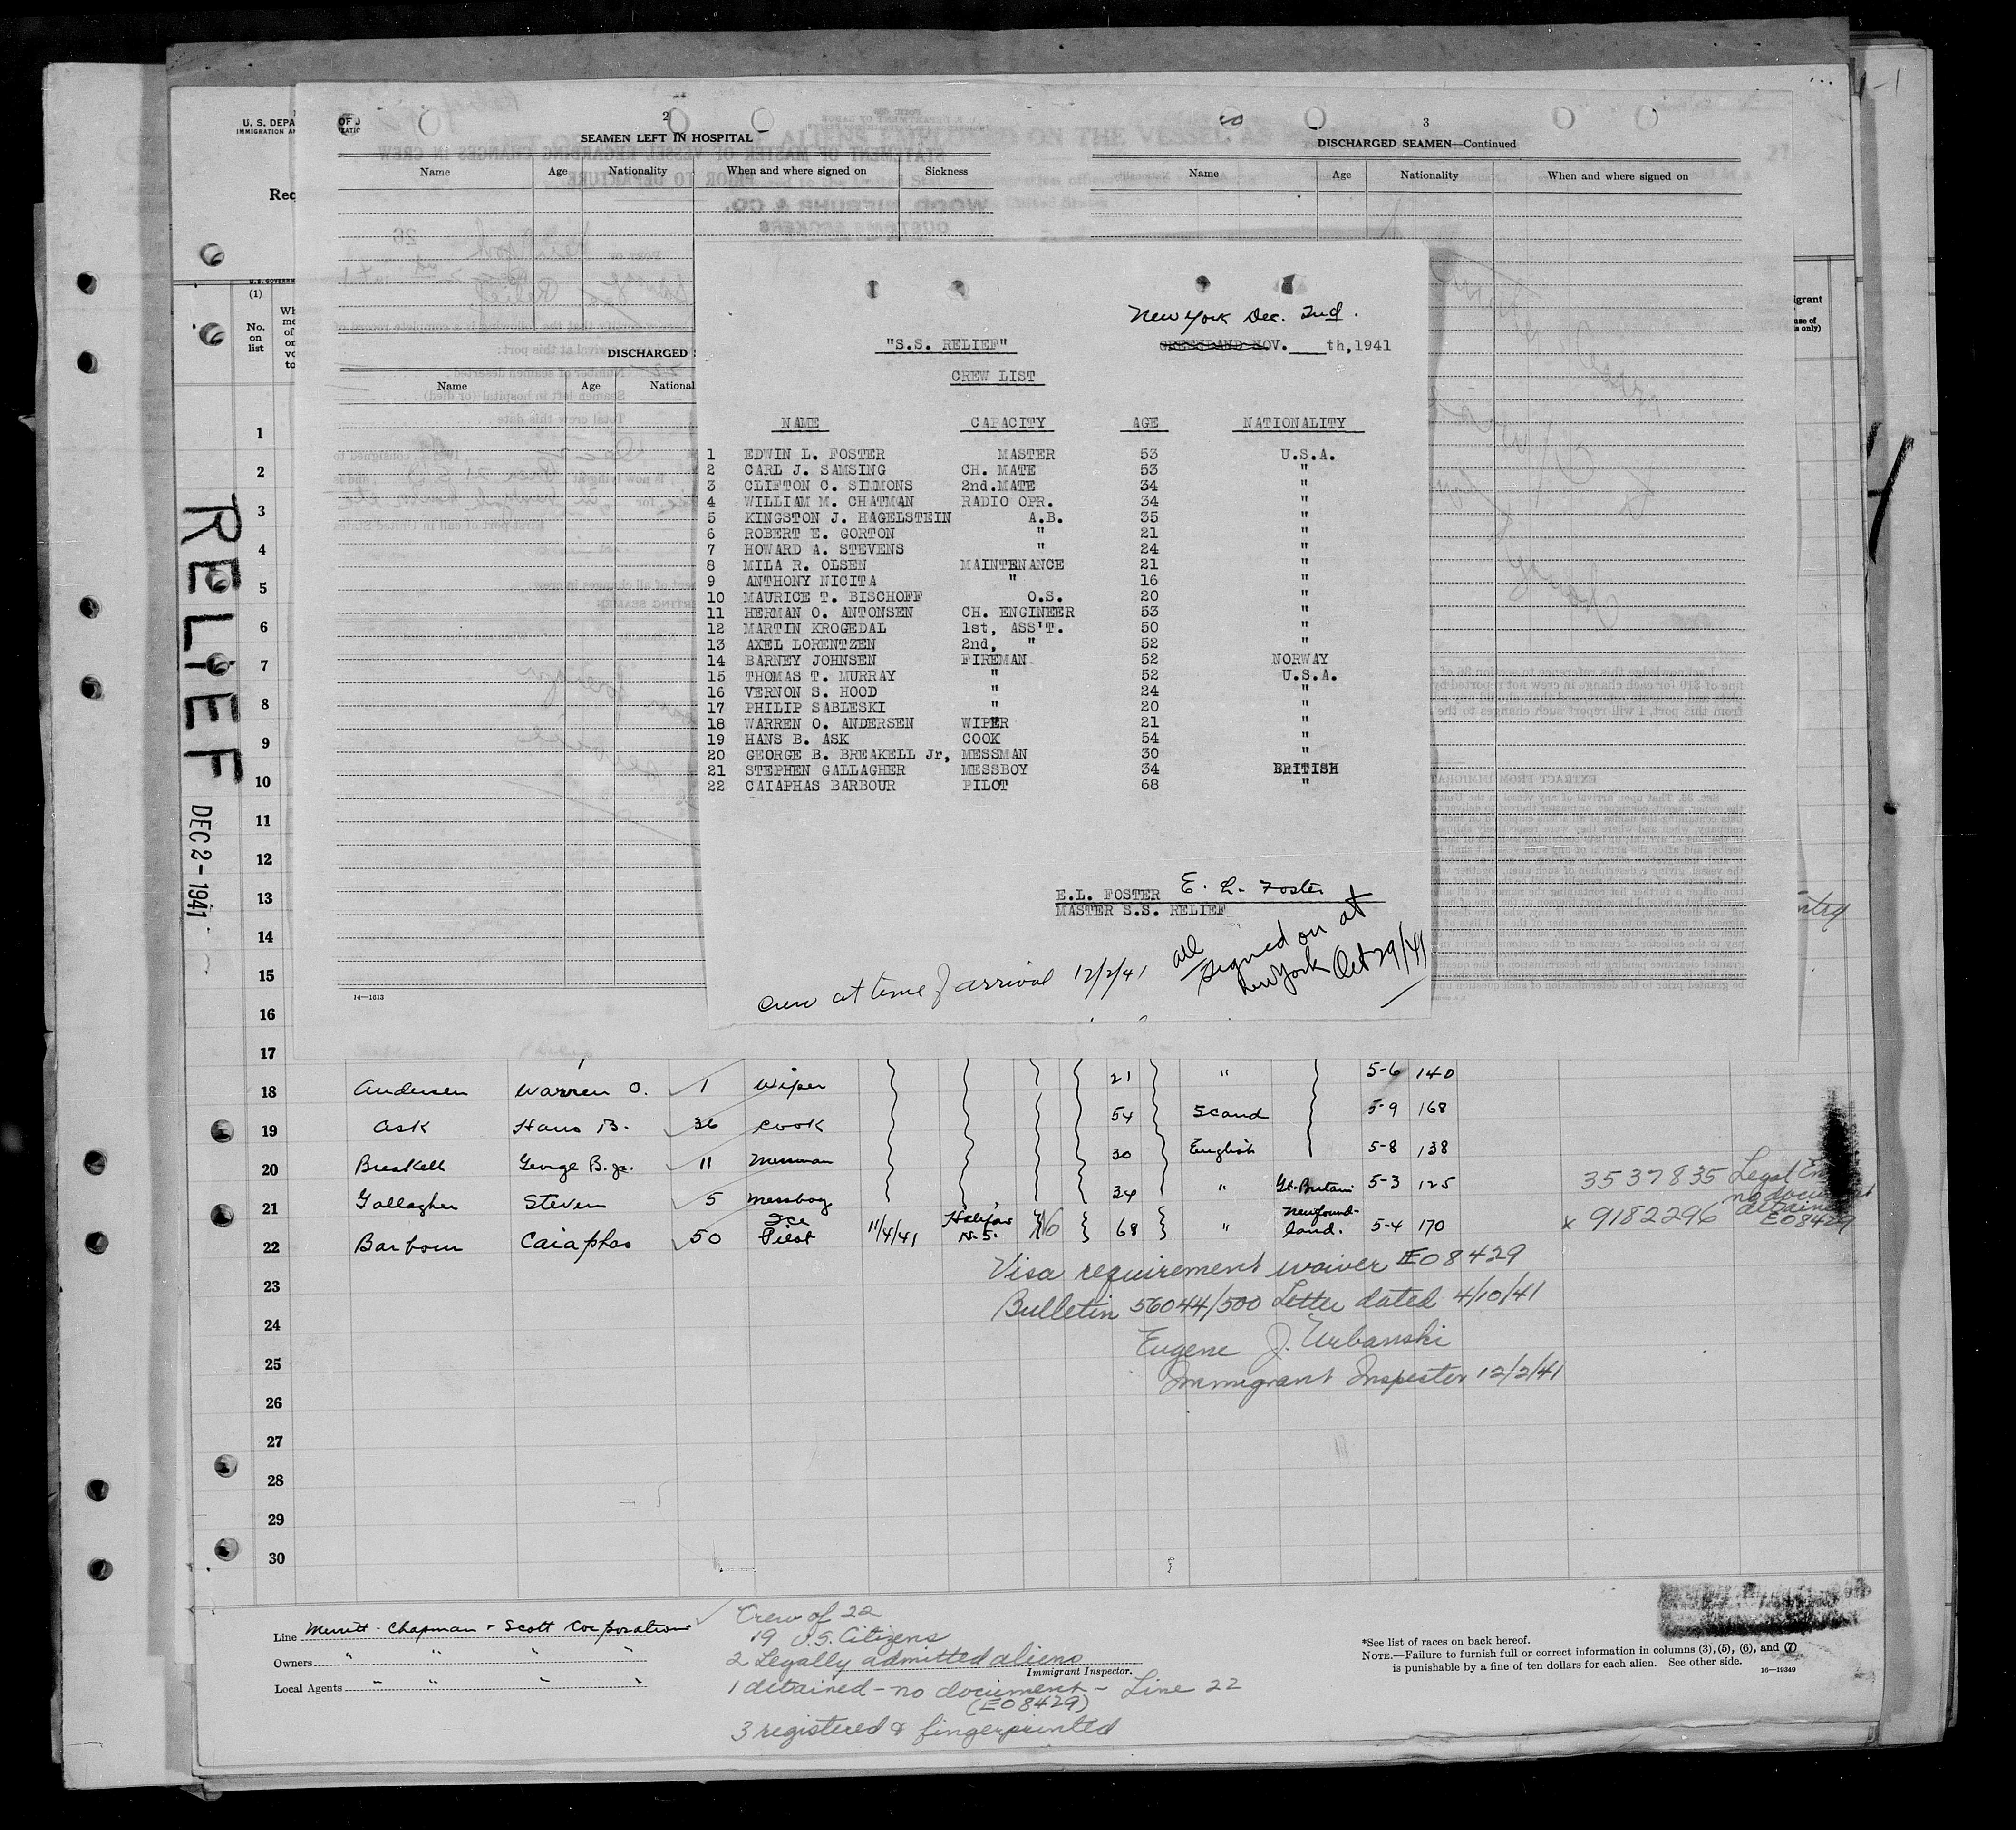 U. S. DEPA
IMMIGRATION A
2
SEAMEN LEFT IN HOSPITAL
Name Age Nationality When and where signed on Sickness
3
DISCHARGED SEAMEN—Continued
Name Age Nationality When and where signed on
DISCHARGED
Name Age National
14—1613
RELIEF
DEC 2-1941
(1)
No.
on
list
New York Dec. 2nd.
"S.S. RELIEF" GREENLAND NOV. ____th,1941
CREW LIST
NAME CAPACITY AGE NATIONALITY
1 EDWIN L. FOSTER MASTER 53 U.S.A.
2 CARL J. SAMSING CH. MATE 53 "
3 CLIFTON C. SIMMONS 2nd.MATE 34 "
4 WILLIAM M. CHATMAN RADIO OPR. 34 "
5 KINGSTON J. HAGELSTEIN A.B. 35 "
6 ROBERT E. GORTON " 21 "
7 HOWARD A. STEVENS " 24 "
8 MILA R. OLSEN MAINTENANCE 21 "
9 ANTHONY NICITA " 16 "
10 MAURICE T. BISCHOFF O.S. 20 "
11 HERMAN O. ANTONSEN CH. ENGINEER 53 "
12 MARTIN KROGEDAL 1st, ASS'T. 50 "
13 AXEL LORENTZEN 2nd, " 52 "
14 BARNEY JOHNSEN FIREMAN 52 NORWAY
15 THOMAS T. MURRAY " 52 U.S.A.
16 VERNON S. HOOD " 24 "
17 PHILIP SABLESKI " 20 "
18 WARREN O. ANDERSEN WIPER 21 "
19 HANS B. ASK COOK 54 "
20 GEORGE B. BREAKELL Jr, MESSMAN 30 "
21 STEPHEN GALLAGHER MESSBOY 34 BRITISH
22 CAIAPHAS BARBOUR PILOT 68 "
E.L. FOSTER E. L. Foster
MASTER S.S. RELIEF
Crew at time of arrival 12/2/41
all signed on at
New York Oct 29/41
1
2
3
4
5
6
7
8
9
10
11
12
13
14
15
16
17
18 Andersen Warren O. 1 Wiper 21 " 5-6 140
19 Ask Hans B. 36 Cook 54 Scand 5-9 168
20 Breakell George B. jr. 11 Messman 30 English 5-8 138
21 Gallagher Steven 5 Messboy 34 " Gt. Britain 5-3 125 3537835 Legal
22 Barbour Caiaphas 50 Ice Pilot 11/4/41 Halifax N.S. 68 " Newfoundland. 5-4 170 x 9182296 no document detained E08429
23 Visa requirement waiver E08429
24 Bulletin 56044/500 Letter dated 4/10/41
25 Eugene J. Urbanski
26 Immigrant Inspector 12/2/41
27
28
29
30
Line Merritt-Chapman & Scott Corporation
Owners " " " "
Local Agents " " " "
Crew of 22
19 U.S. Citizens
2 Legally admitted aliens
Immigrant Inspector.
1 detained - no document - Line 22
(E08429)
3 registered & fingerprinted
*See list of races on back hereof.
NOTE.—Failure to furnish full or correct information in columns (3), (5), (6), and (7)
is punishable by a fine of ten dollars for each alien. See other side.
16—19349